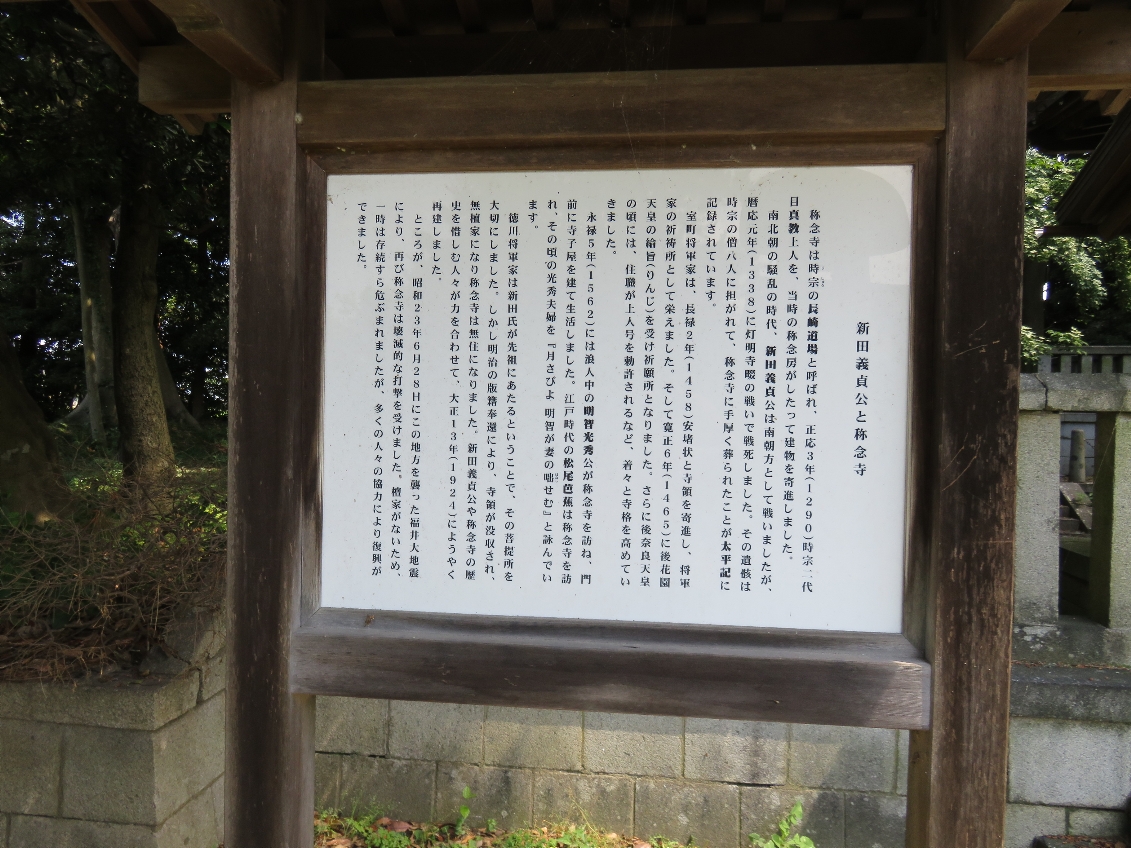 新田義貞公と称念寺
称念寺は時宗の長崎道場と呼ばれ、正応3年(1290)時宗二代
目真教上人を、当時の称念房がしたって建物を寄進しました。
南北朝の騒乱の時代、新田義貞公は南朝方として戦いましたが、
暦応元年(1338)に灯明寺畷の戦いで戦死しました。その遺骸は
時宗の僧八人に担がれて、称念寺に手厚く葬られたことが太平記に
記録されています。
室町将軍家は、長禄2年(1458)安堵状と寺領を寄進し、将軍
家の祈祷所として栄えました。そして寛正6年(1465)に後花園
天皇の綸旨(りんじ)を受け祈願所となりました。さらに後奈良天皇
の頃には、住職が上人号を勅許されるなど、着々と寺格を高めてい
きました。
永禄5年(1562)には浪人中の明智光秀公が称念寺を訪ね、門
前に寺子屋を建て生活しました。江戸時代の松尾芭蕉は称念寺を訪
れ、その頃の光秀夫婦を『月さびよ 明智が妻の咄せむ』と詠んでい
ます。
徳川将軍家は新田氏が先祖にあたるということで、その菩提所を
大切にしました。しかし明治の版籍奉還により、寺領が没収され、
無檀家になり称念寺は無住になりました。新田義貞公や称念寺の歴
史を惜しむ人々が力を合わせて、大正13年(1924)にようやく
再建しました。
ところが、昭和23年6月28日にこの地方を襲った福井大地震
により、再び称念寺は壊滅的な打撃を受けました。檀家がないため、
一時は存続すら危ぶまれましたが、多くの人々の協力により復興が
できました。